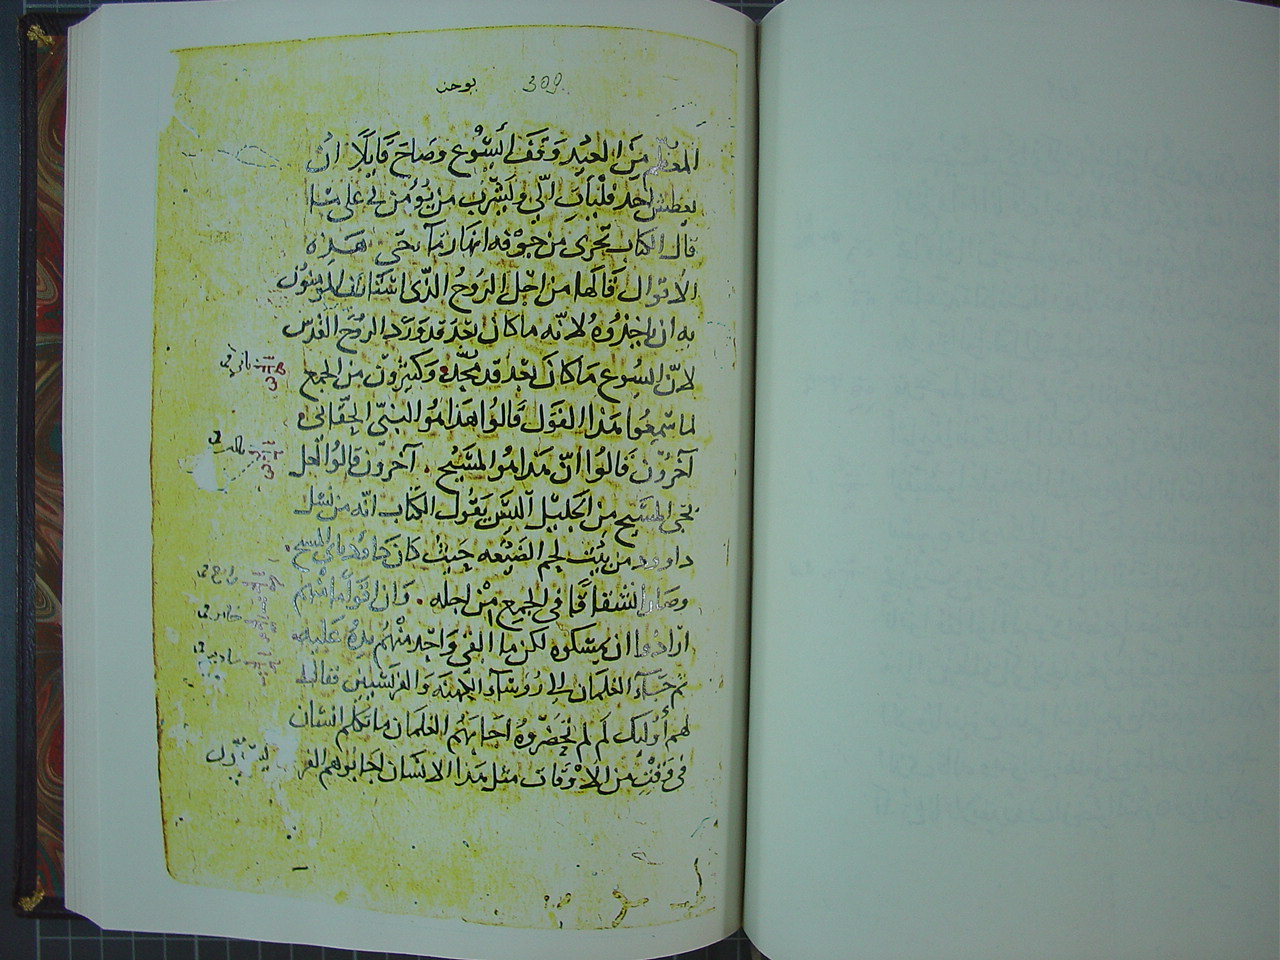 يوحنا 309
المعظم من العيد وقف ايسوع وصاح قايلا ان
يعطش احد فليات الي وليشرب من يؤمن بي على ما
قال الكتاب تجرى من جوفه انهار مآ حي هذه
الاقوال قالها من اجل الروح الذى اشتانف المومنون
به ان ياخذوه لانه ما كان بعد قد ورد الروح القدس
لان ايسوع ما كان بعد قد تمجد وكثيرون من الجمع
لما سمعوا هذا القول قالوا هذا هو النبي الحقاني
آخرون قالوا ان هذا هو المسيح . آخرون قالوا لعل
يجى المسيح من الجليل آليس يقول الكتاب انه من نسل
داوود من بيت لحم الضيعه حيث كان داود ياتي المسيح
وصار انشقاقا في الجمع من اجله . وان اقواما منهم
ارادوا ان يمسكوه لكن ما القى واحد منهم يده عليه
ثم جآء الغلمان الى روسآء الكهنة والفريسيين فقال
لهم أوليك لم لم تحضروه اجابهم الغلمان ما تكلم انسان
في وقت من الاوقات مثل هذا الانسان اجابوهم الفر